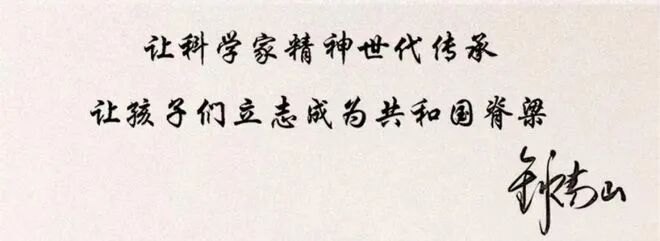 让科学家精神世代传承
让孩子们立志成为共和国脊梁
钟南山